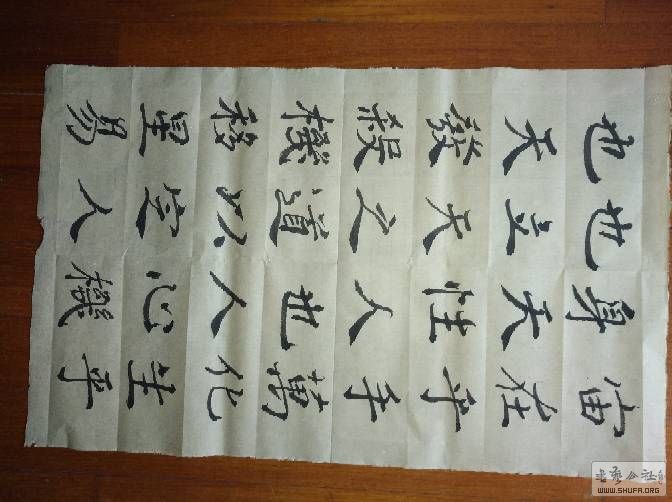 宙在乎手萬化生乎
身天性人也人心機
也立天之道以定人
也天發殺機移星易
WWW.SHUFA.ORG